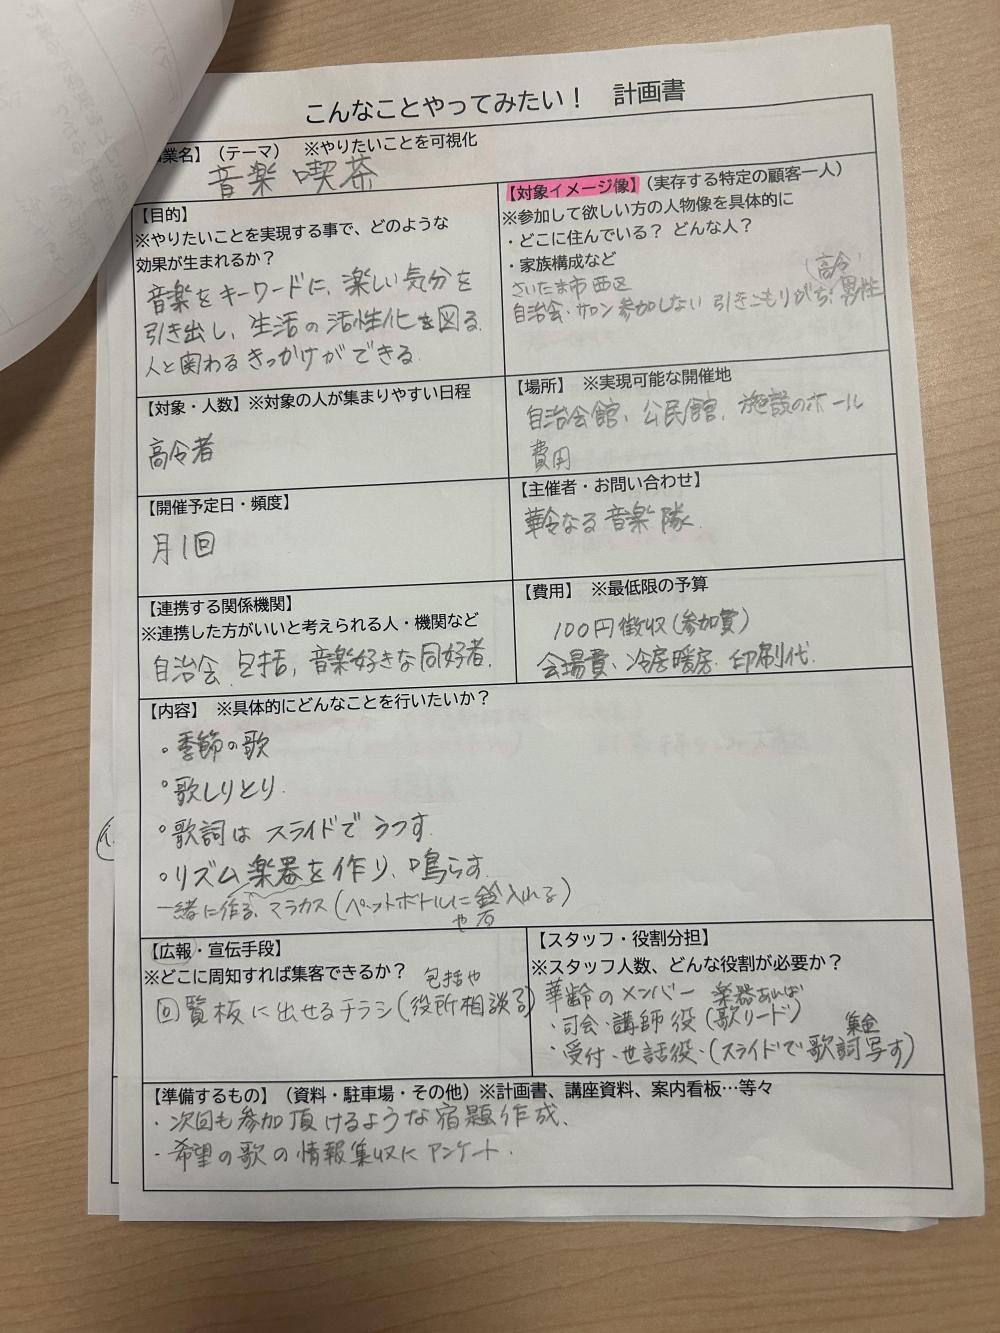 こんなことやってみたい！　計画書
業名】（テーマ）　※やりたいことを可視化
音楽喫茶
【目的】
※やりたいことを実現する事で、どのような
効果が生まれるか？
音楽をキーワードに、楽しい気分を
引き出し、生活の活性化を図る
人と関わるきっかけができる
【対象イメージ像】（実存する特定の顧客一人）
※参加して欲しい方の人物像を具体的に
・どこに住んでいる？ どんな人？
・家族構成など
さいたま市西区
（高令）
自治会・サロン参加しない 引きこもりがち 男性
【対象・人数】※対象の人が集まりやすい日程
高令者
【場所】　※実現可能な開催地
自治会館、公民館、施設のホール
費用
【開催予定日・頻度】
月1回
【主催者・お問い合わせ】
華令なる音楽隊
【連携する関係機関】
※連携した方がいいと考えられる人・機関など
自治会、包括、音楽好きな同好者
【費用】　※最低限の予算
100円徴収（参加費）
会場費、冷房暖房、印刷代
【内容】　※具体的にどんなことを行いたいか？
・季節の歌
・歌しりとり
・歌詞はスライドでうつす
・リズム楽器を作り、鳴らす
一緒に作る、マラカス（ペットボトルに鈴入れる）
や石
【広報・宣伝手段】
※どこに周知すれば集客できるか？
包括や
回覧板に出せるチラシ（役所相談する）
【スタッフ・役割分担】
※スタッフ人数、どんな役割が必要か？
華齢のメンバー　楽器あれば
・司会・講師役（歌リード）
集金
・受付・世話役・（スライドで歌詞写す）
【準備するもの】（資料・駐車場・その他）※計画書、講座資料、案内看板…等々
・次回も参加頂けるような宿題作成、
・希望の歌の情報集収にアンケート・